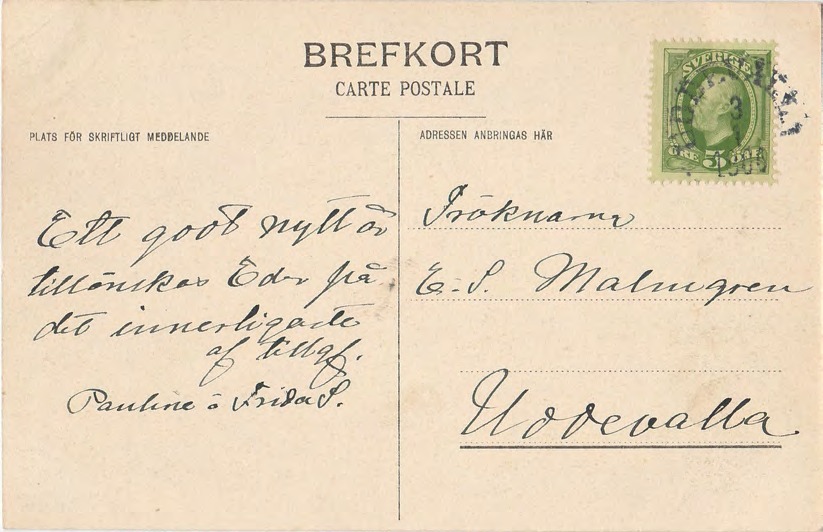 BREFKORT
CARTE POSTALE
PLATS FÖR SKRIFTLIGT MEDDELANDE
ADRESSEN ANBRINGAS HÄR
SVERIGE
ÖRE 5 ÖRE
3
1
Ett godt nytt år
tillönskas Eder på
det innerligaste
af tillgf.
Pauline o Frida S.
Fröknarna
E. S. Malmgren
Uddevalla